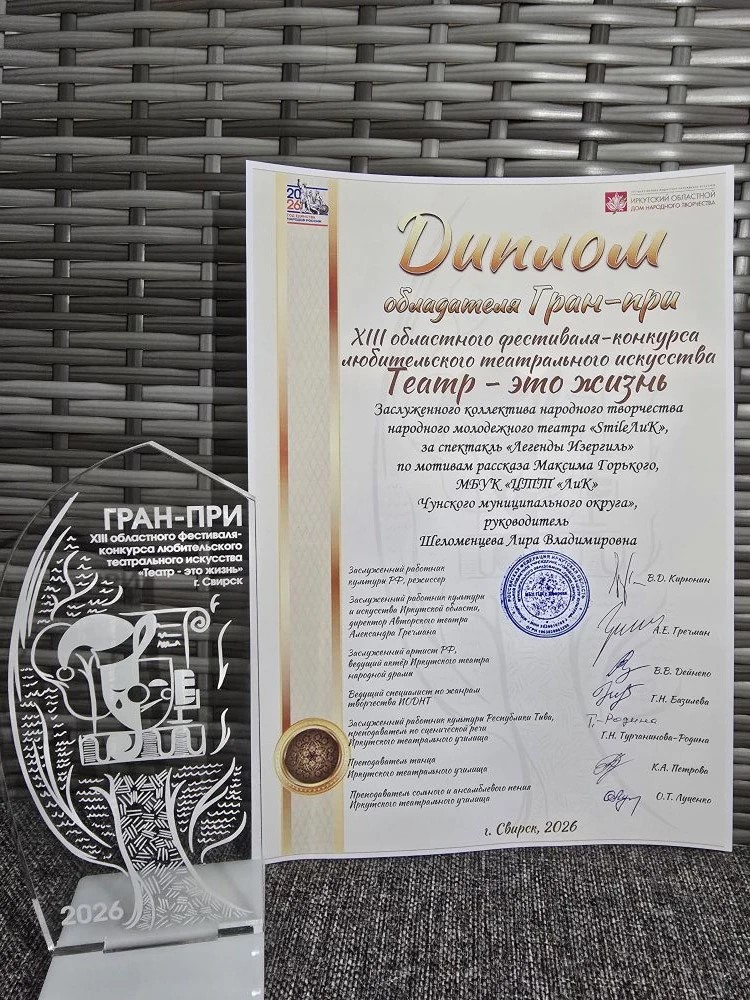 20
26
ГОД ЕДИНСТВА
НАРОДОВ РОССИИ
ИРКУТСКИЙ ОБЛАСТНОЙ
ДОМ НАРОДНОГО ТВОРЧЕСТВА
Диплом
обладателя Гран-при
XIII областного фестиваля-конкурса
любительского театрального искусства
Театр - это жизнь
Заслуженного коллектива народного творчества
народного молодежного театра «SmileЛиК»,
за спектакль «Легенды Изергиль»
по мотивам рассказа Максима Горького,
МБУК «ЦТТ «ЛиК»
Чунского муниципального округа»,
руководитель
Шеломенцева Лира Владимировна
Заслуженный работник
культуры РФ, режиссер
В.Д. Кирюнин
Заслуженный работник культуры
и искусства Иркутской области,
директор Авторского театра
Александра Гречмана
А.Е. Гречман
Заслуженный артист РФ,
ведущий актёр Иркутского театра
народной драмы
В.В. Дейнеко
Ведущий специалист по жанрам
творчества ИОДНТ
Г.Н. Базилева
Заслуженный работник культуры Республики Тыва,
преподаватель по сценической речи
Иркутского театрального училища
Г.Н. Турчанинова-Родина
Преподаватель танца
Иркутского театрального училища
К.А. Петрова
Преподаватель сольного и ансамблевого пения
Иркутского театрального училища
О.Т. Луценко
г. Свирск, 2026
ГРАН-ПРИ
XIII областного фестиваля-
конкурса любительского
театрального искусства
«Театр - это жизнь»
г. Свирск
2026